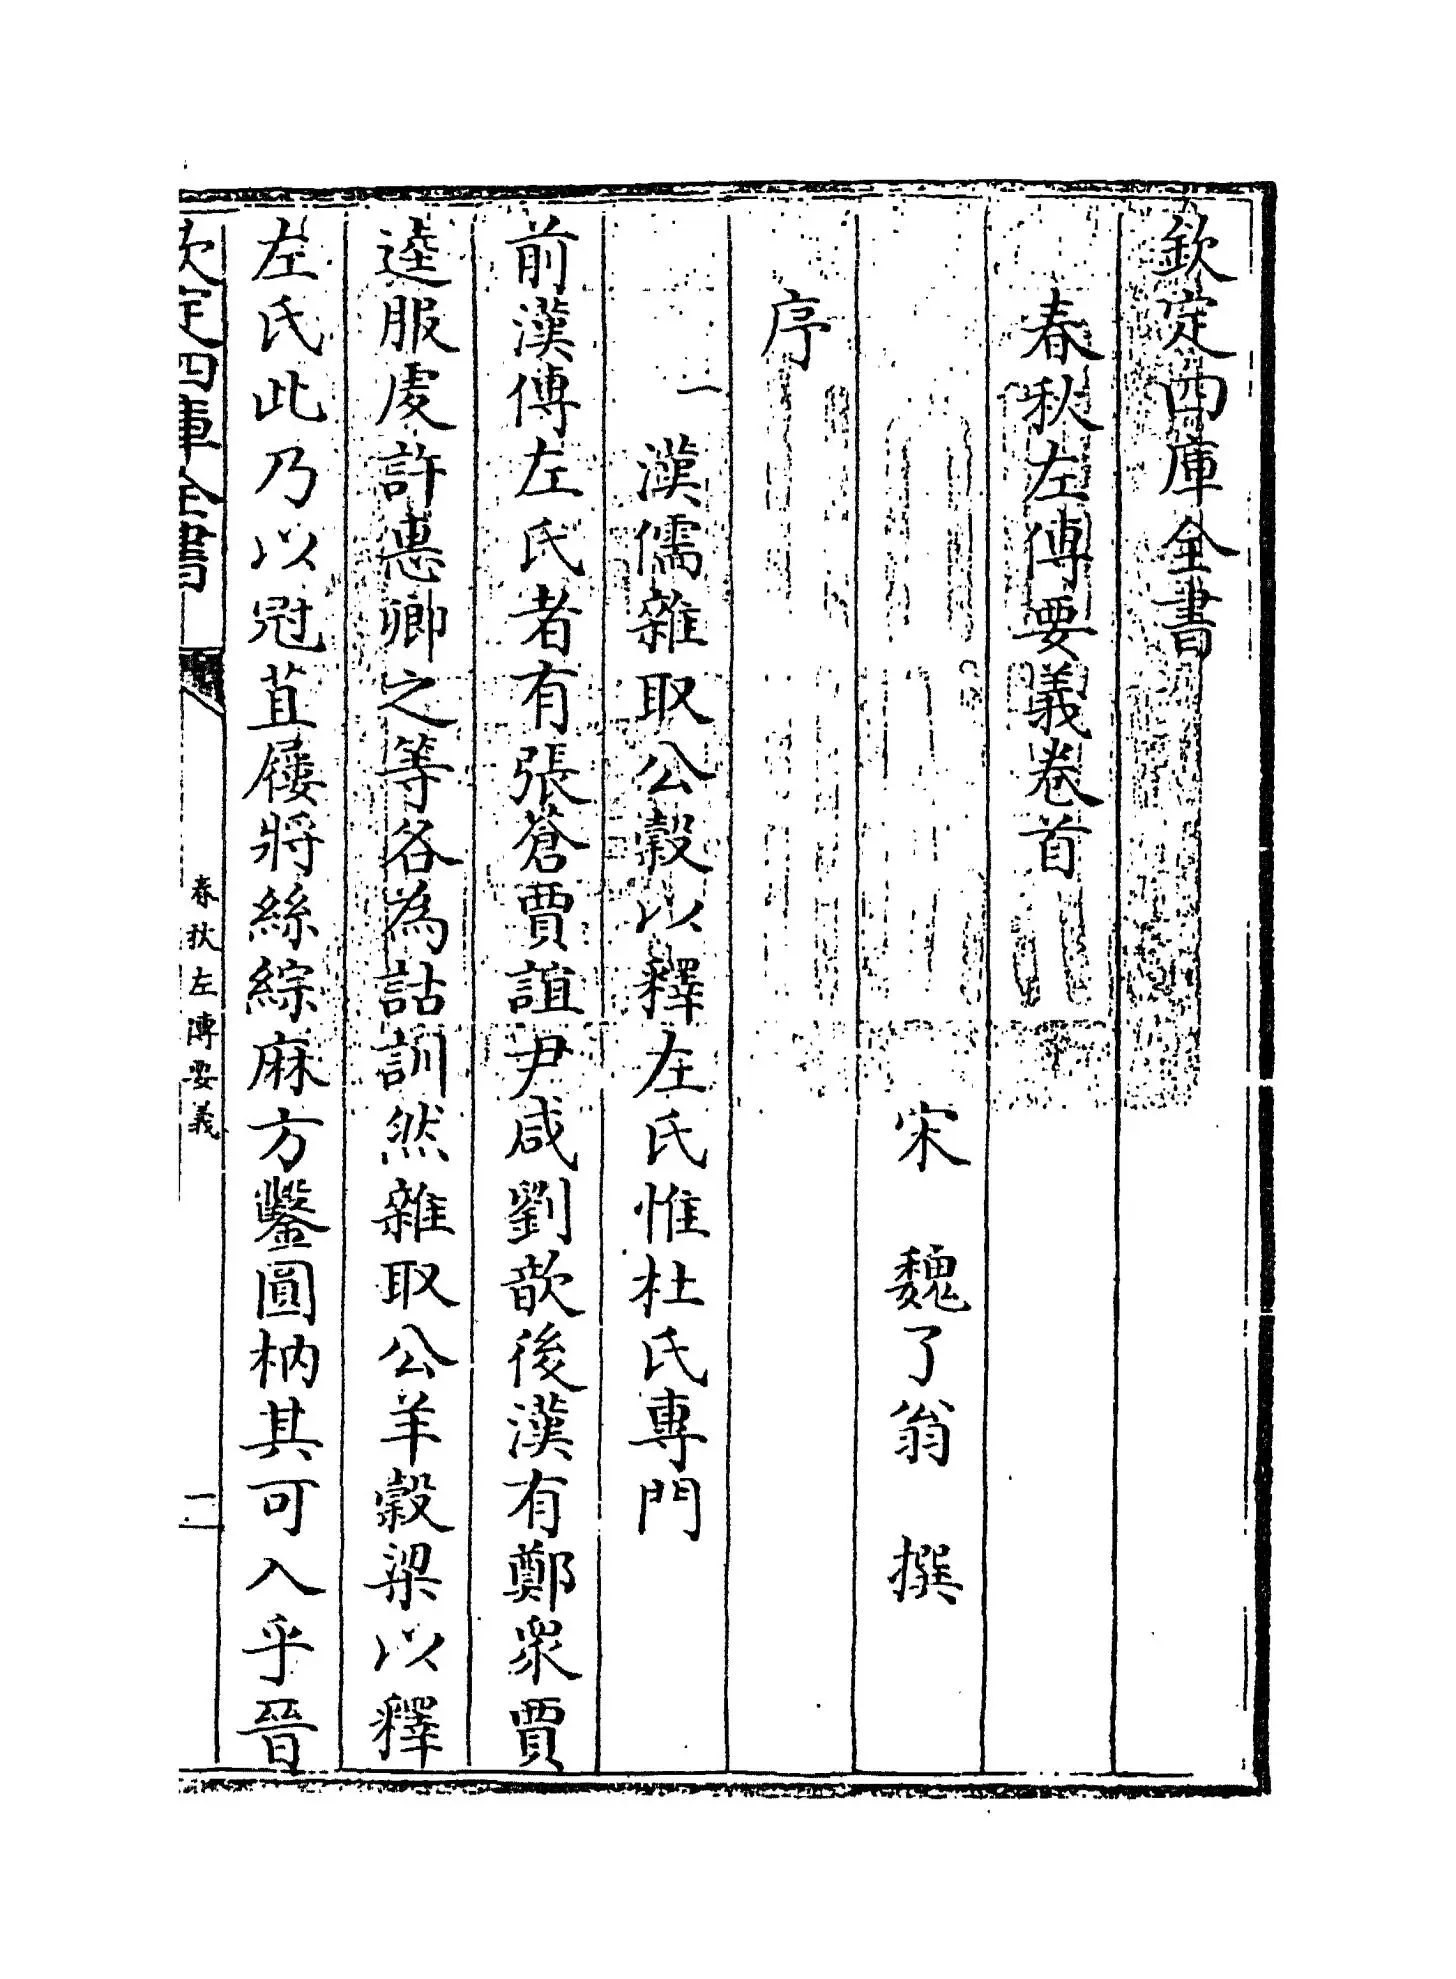 欽定四庫全書
春秋左傳要義卷首
宋 魏了翁 撰
序
一 漢儒雜取公穀以釋左氏惟杜氏專門
前漢傳左氏者有張蒼賈誼尹咸劉歆後漢有鄭衆賈
逵服虔許惠卿之等各為詁訓然雜取公羊穀梁以釋
左氏此乃以冠苴屨將絲綜麻方鑿圓枘其可入乎晉
欽定四庫全書
春秋左傳要義
一